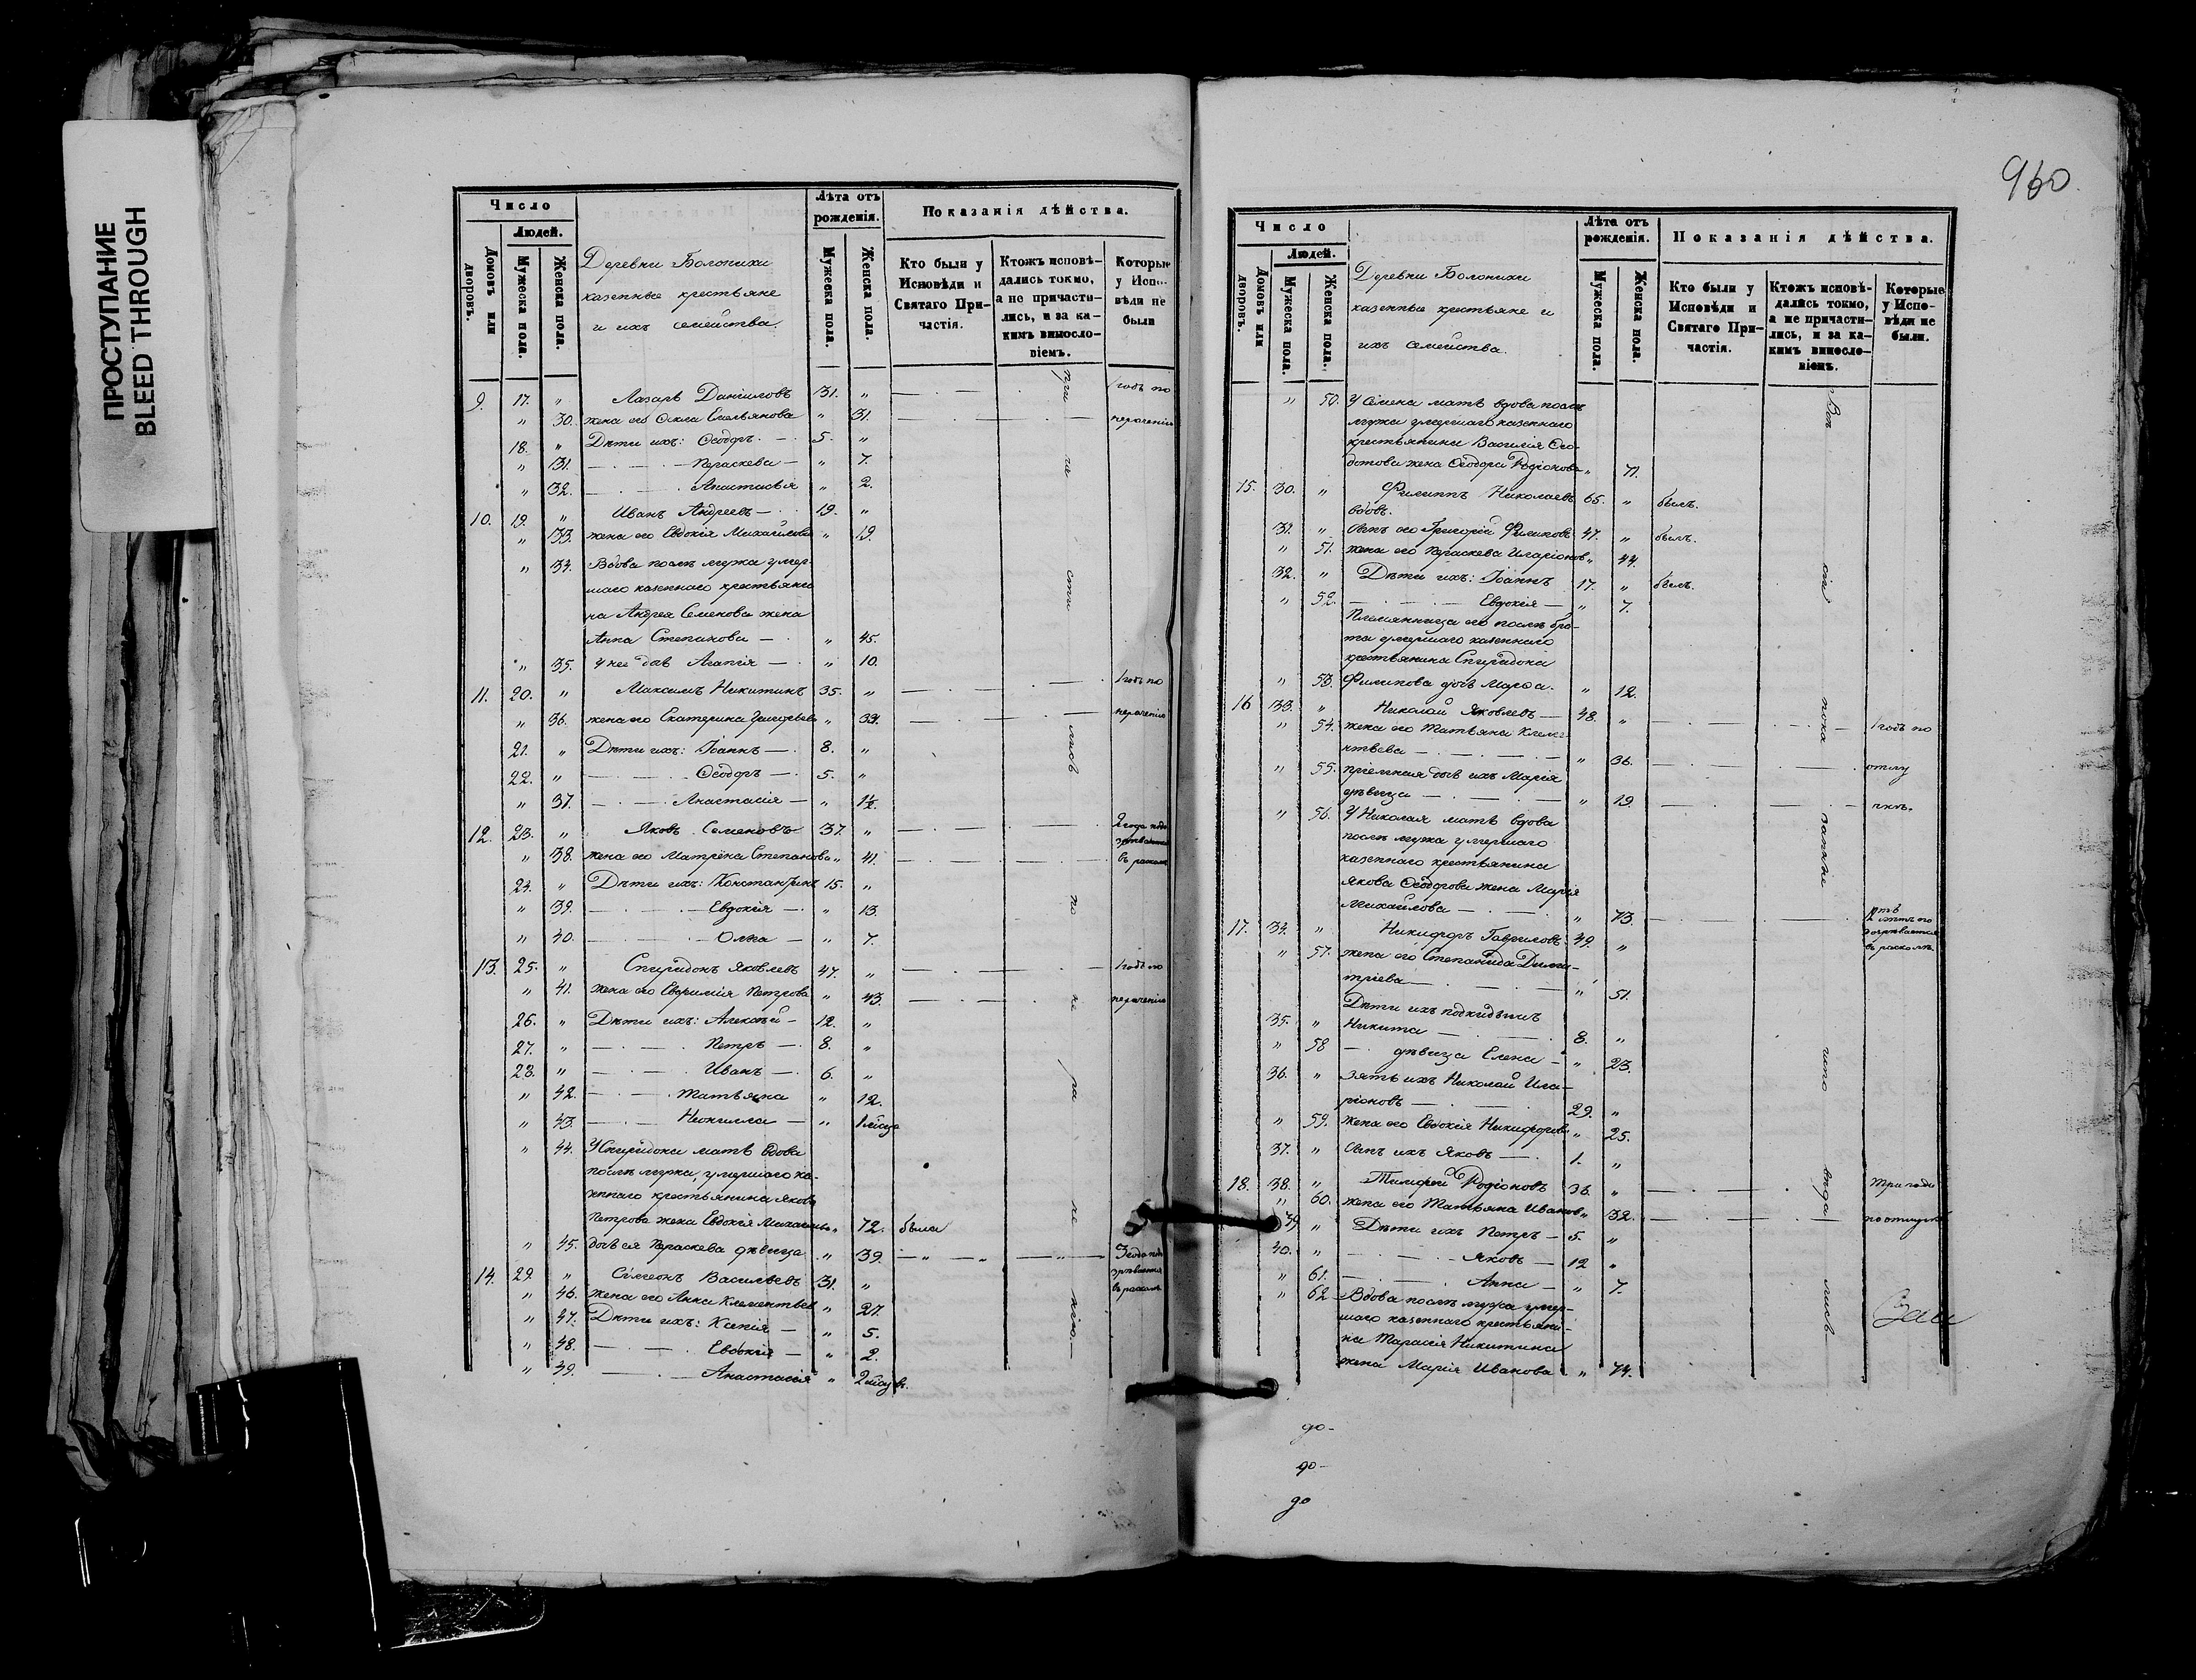 ПРОСТУПАНИЕ
BLEED THROUGH
Число
Людей.
Домовъ или дворовъ.
Мужеска пола.
Женска пола.
Деревни Болонихи
казенные крестьяне
и ихъ семейства.
Лѣта отъ рожденія.
Мужеска пола.
Женска пола.
Показанія дѣйства.
Кто были у Исповѣди и Святаго Причастія.
Ктожъ исповѣдались токмо, а не причастились, и за какимъ винословіемъ.
Которые у Испо- вѣди не были
9. 17. " Лазарь Даниловъ 31. " 1 годъ по
" 30. жена его Ѳекла Емельянова " 31. нераченію
18. " Дѣти ихъ: Ѳеодоръ 5. "
" 31. Параскева " 7.
" 32. Анастасія " 2.
10. 19. " Иванъ Андреевъ 19. "
" 33. жена его Евдокія Михайлова " 19.
" 34. Вдова послѣ мужа умер-
шаго казеннаго крестьяни
на Андрея Семенова жена
Анна Степанова " 45.
" 35. У нее дочь Агапія " 10.
11. 20. " Максимъ Никитинъ 35. " 1 годъ по
" 36. жена его Екатерина Григорьева " 39. нераченію
21. " Дѣти ихъ: Іоаннъ 8. "
22. " Ѳеодоръ 5. "
" 37. Анастасія " 1½.
12. 23. " Яковъ Семеновъ 37. " 2 года подо
зрѣвается
" 38. жена его Матрена Степанова " 41. въ расколѣ
24. " Дѣти ихъ: Константинъ 15. "
" 39. Евдокія " 13.
" 40. Ольга " 7.
13. 25. " Спиридонъ Яковлевъ 47. " 1 годъ по
" 41. жена его Евфимія Петрова " 43. нераченію
26. " Дѣти ихъ: Алексѣй 12. "
27. " Петръ 8. "
28. " Иванъ 6. "
" 42. Татьяна " 12.
" 43. Неонилла " 1 мѣсяц
" 44. У Спиридона мать вдова
послѣ мужа, умершаго ка-
зеннаго крестьянина Якова
Петрова жена Евдокія Михайлова " 72. была
" 45. дочь ея Параскева дѣвица " 39. 3 года подо
зрѣвается
14. 29. " Сімеонъ Васильевъ 31. " въ расколѣ
" 46. жена его Анна Клементьев " 27.
" 47. Дѣти ихъ: Ксенія " 5.
" 48. Евдокія " 2.
" 49. Анастасія " 2 мѣсяцъ.
960.
Число
Людей.
Домовъ или дворовъ.
Мужеска пола.
Женска пола.
Деревни Болонихи
казенные крестьяне и
ихъ семейства.
Лѣта отъ рожденія.
Мужеска пола.
Женска пола.
Показанія дѣйства.
Кто были у Исповѣди и Святаго Причастія.
Ктожъ исповѣдались токмо, а не причастились, и за какимъ винословіемъ.
Которые у Испо- вѣди не были.
" 50. У Семена мать вдова послѣ
мужа умершаго казеннаго
крестьянина Василія Ѳео-
дотова жена Ѳеодора Родіонова " 71.
15. 30. " Филиппъ Николаевъ 65. " былъ.
вдовъ.
31. " Сынъ его Григорій Филиповъ 47. " былъ.
" 51. жена его Параскева Иларіонов " 44.
32. " Дѣти ихъ: Іоаннъ 17. " былъ.
" 52. Евдокія " 7.
Племянница его послѣ бра-
та умершаго казеннаго
крестьянина Спиридона
" 53. Филипова дочь Марѳа. " 12.
16 33. " Николай Яковлевъ 48. " 1 годъ по
" 54. жена его Татьяна Клеме
нтьева " 36. отлу
" 55. пріемная дочь ихъ Марія
дѣвица " 19. чкѣ.
" 56. У Николая мать вдова
послѣ мужа умершаго
казеннаго крестьянина
Якова Ѳеодорова жена Марія
Михайлова " 73.
въ расколѣ
17. 34. " Никифоръ Гавриловъ 49. "
" 57. жена его Степанида Дими-
тріева " 51.
Дѣти ихъ подкидышъ
35. " Никита 8. "
" 58 дѣвица Елена " 23.
36. " зять ихъ Николай Ила-
ріоновъ 29. "
" 59. жена его Евдокія Никифорова " 25.
37. " Сынъ ихъ Яковъ 1. "
18. 38. " Тимофей Родіоновъ 36. " три года
" 60. жена его Татьяна Иванов " 32. по отлучкѣ
39. " Дѣти ихъ Петръ 5. "
40. " Яковъ 12 "
" 61. Анна " 7.
" 62 Вдова послѣ мужа умер-
шаго казеннаго крестьяни-
на Тарасія Никитина
жена Марія Иванова " 74.
до-
до-
до